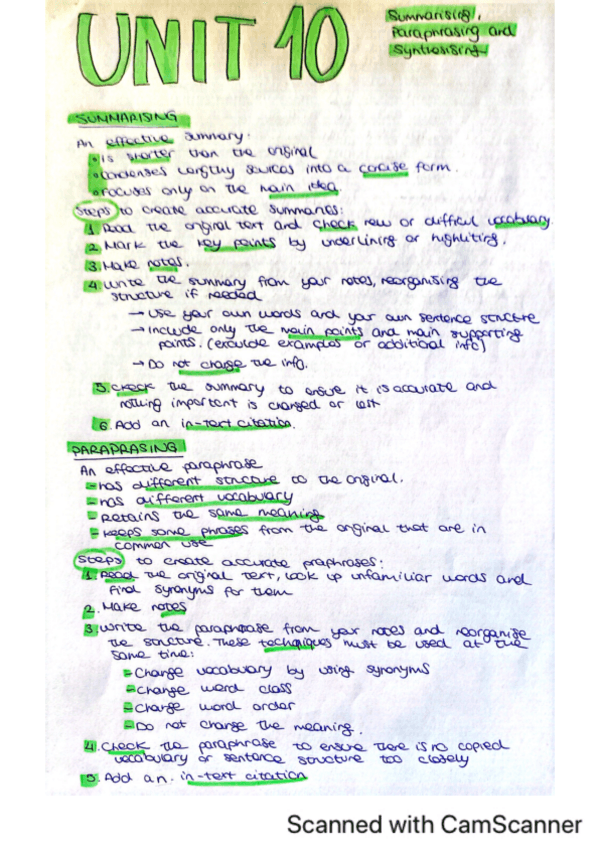 UNIT 10
Summarising,
Paraphrasing and
Synthesising
SUMMARISING
An effective summary:
• is shorter than the original
• condenses lengthy sources into a concise form.
• focuses only on the main idea.
Steps to create accurate summaries:
1. Read the original text and check new or difficult vocabulary.
2. Mark the key points by underlining or highliting.
3. Make notes.
4. Write the summary from your notes, reorganising the
structure if needed
→ Use your own words and your own sentence structure
→ Include only the main points and main supporting
points. (exclude examples or additional info)
→ Do not change the info.
5. Check the summary to ensure it is accurate and
nothing important is changed or left
6. Add an in-text citation.
PARAPRASING
An effective paraphrase
- has different structure to the original.
- has different vocabulary
- Retains the same meaning
- keeps some phrases from the original that are in
common use
Steps to create accurate praphrases:
1. Read the original text, look up unfamiliar words and
find synonyms for them
2. Make notes
3. Write the paraphrase from your notes and reorganise
the structure. These techniques must be used at the
same time:
- Change vocabulary by using synonyms
- Change word class
- Change word order
- Do not change the meaning.
4. Check the paraphrase to ensure there is no copied
vocabulary or sentence structure too closely
5. Add an in-text citation
Scanned with CamScanner